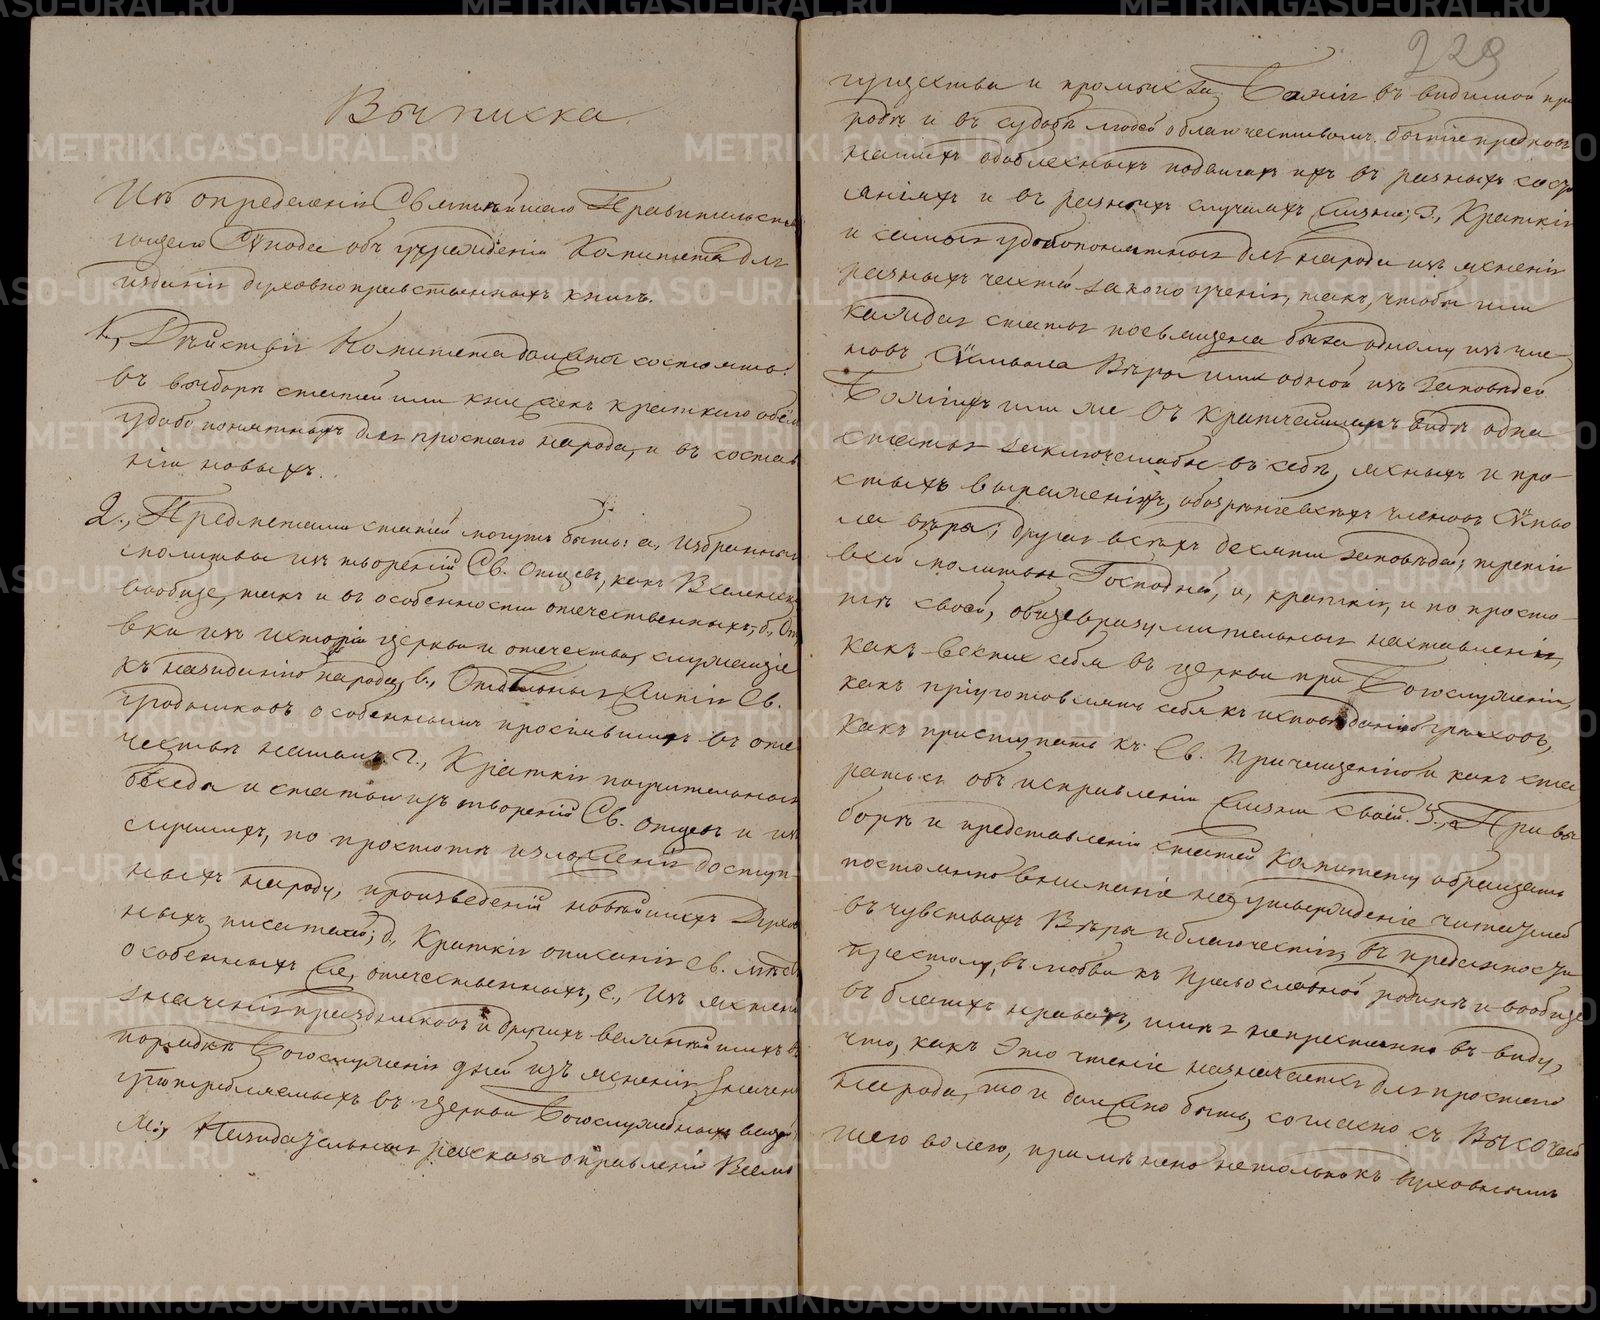 Выписка
Изъ опредѣленія Святѣйшаго Правительству
ющаго Сѵнода объ учрежденіи Комитета для
изданія духовно нравственныхъ книгъ.
1., Дѣйствія Комитета должны состоять:
въ выборѣ статей или книжекъ краткаго объема
удобопонятныхъ для простаго народа, и въ составле
ніи новыхъ.
2., Предметами статей могутъ быть: а, избранныя
молитвы изъ твореній Св. Отцевъ, какъ Вселенскихъ
вообще, такъ и въ особенности отечественныхъ; б,
вки изъ исторіи церкви и отечества, служащіе
къ назиданію народа, в., Отдѣльныя Житія Св.
Угодниковъ особенными просіявшихъ въ оте
чествѣ нашемъ. г., Краткія поучительныя
бѣседы и статьи изъ твореній Св. отцевъ и изъ
лучшихъ, по простотѣ изложенія доступ-
ныхъ народу, произведеній новѣйшихъ Духов
ныхъ писателей; д, Краткія описанія Св. мѣстъ
особенныхъ же, отечественныхъ, е., Изъясненія
значенія праздниковъ и другихъ важнѣйшихъ въ
порядкѣ Богослуженія дней изъясненія значенія
употребляемыхъ въ церкви Богослужебныхъ вещей
ж., Назидательныя разсказы о правленіи Всемо
229
гущества и промысла Божія въ видимой при
родѣ и въ судьбѣ людей о благочестивомъ бытіе предковъ
нашихъ одоблежныхъ подвигахъ ихъ въ разныхъ состо
яніяхъ и въ разныхъ случаяхъ жизни; з., Краткія
и самыя удобопонятныя для народа изъясненія
разныхъ частей законоученія, такъ, чтобы или
каждая статья посвящена была одному изъ чле
новъ Сѵмвола Вѣры или одной изъ заповѣдей
Божіихъ или же въ кратчайшемъ видѣ одна
статья заключала бы въ себѣ, ясныхъ и про-
стыхъ выраженіяхъ, обозрѣніе всѣхъ членовъ Сѵмво
ла вѣры; другая всѣхъ десяти заповѣдей; третія
всей молитвы Господней, и, краткія, и по просто-
тѣ своей, общевразумительныя наставленія,
какъ вести себя въ церкви при Богослуженіи,
какъ пріуготовлять себя къ исповѣданію грѣховъ,
какъ приступать къ Св. Причащенію и какъ ста
раться объ исправленіи жизни своей. 3., При вы
борѣ и представленіи статей Комитету обращать
постоянно вниманіе на утвержденіе читателей
въ чувствахъ Вѣры и благочестія, въ преданности
престолу, въ любви къ Православной родинѣ и вообще
въ благихъ нравахъ, имѣя непрестанно въ виду,
что, какъ это чтеніе назначается для простаго
народа, то и должно быть, согласно съ Высочай
шею волею, примѣнено не только къ духовнымъ
METRIKI.GASO-URAL.RU